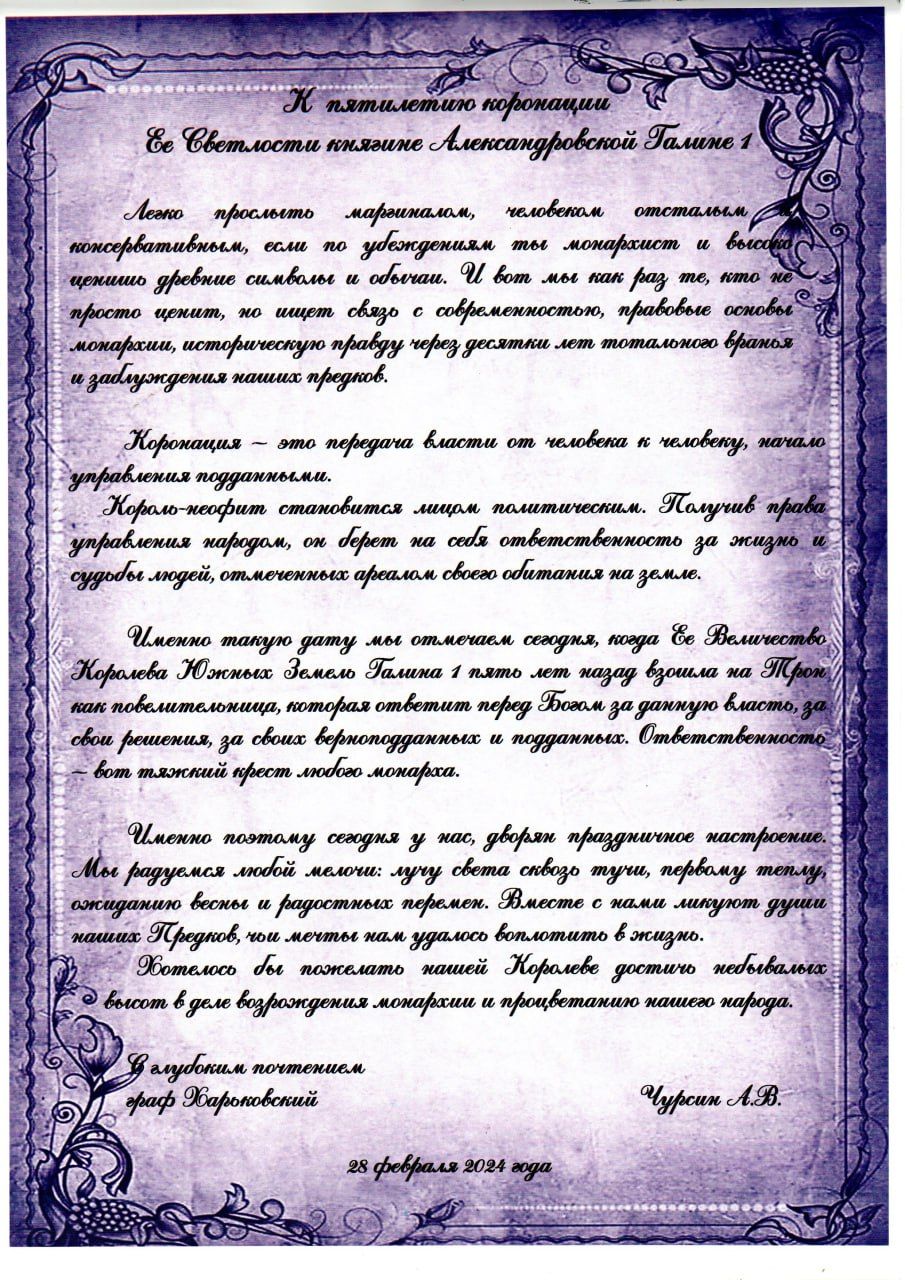 К пятилетию коронации
Ее Светлости княгине Александровской Галине 1
Легко прослыть маргиналом, человеком отсталым и
консервативным, если по убеждениям ты монархист и высоко
ценишь древние символы и обычаи. И вот мы как раз те, кто не
просто ценит, но ищет связь с современностью, правовые основы
монархии, историческую правду через десятки лет тотального вранья
и заблуждения наших предков.
Коронация – это передача власти от человека к человеку, начало
управления подданными.
Король-неофит становится лицом политическим. Получив права
управления народом, он берет на себя ответственность за жизнь и
судьбы людей, отмеченных ареалом своего обитания на земле.
Именно такую дату мы отмечаем сегодня, когда Ее Величество
Королева Южных Земель Галина 1 пять лет назад взошла на Трон
как повелительница, которая ответит перед Богом за данную власть, за
свои решения, за своих верноподданных и подданных. Ответственность
– вот тяжкий крест любого монарха.
Именно поэтому сегодня у нас, дворян праздничное настроение.
Мы радуемся любой мелочи: лучу света сквозь тучи, первому теплу,
ожиданию весны и радостных перемен. Вместе с нами ликуют души
наших Предков, чьи мечты нам удалось воплотить в жизнь.
Хотелось бы пожелать нашей Королеве достичь небывалых
высот в деле возрождения монархии и процветанию нашего народа.
С глубоким почтением
граф Харьковский Чурсин А.В.
28 февраля 2024 года